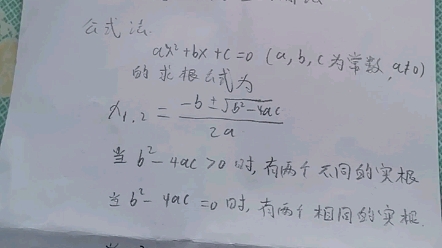 公式法
ax²+bx+c=0 (a,b,c为常数,a≠0)
的求根公式为
x₁,₂ = (-b±√(b²-4ac))/(2a)
当 b²-4ac>0时,有两个不同的实根
当 b²-4ac=0时,有两个相同的实根